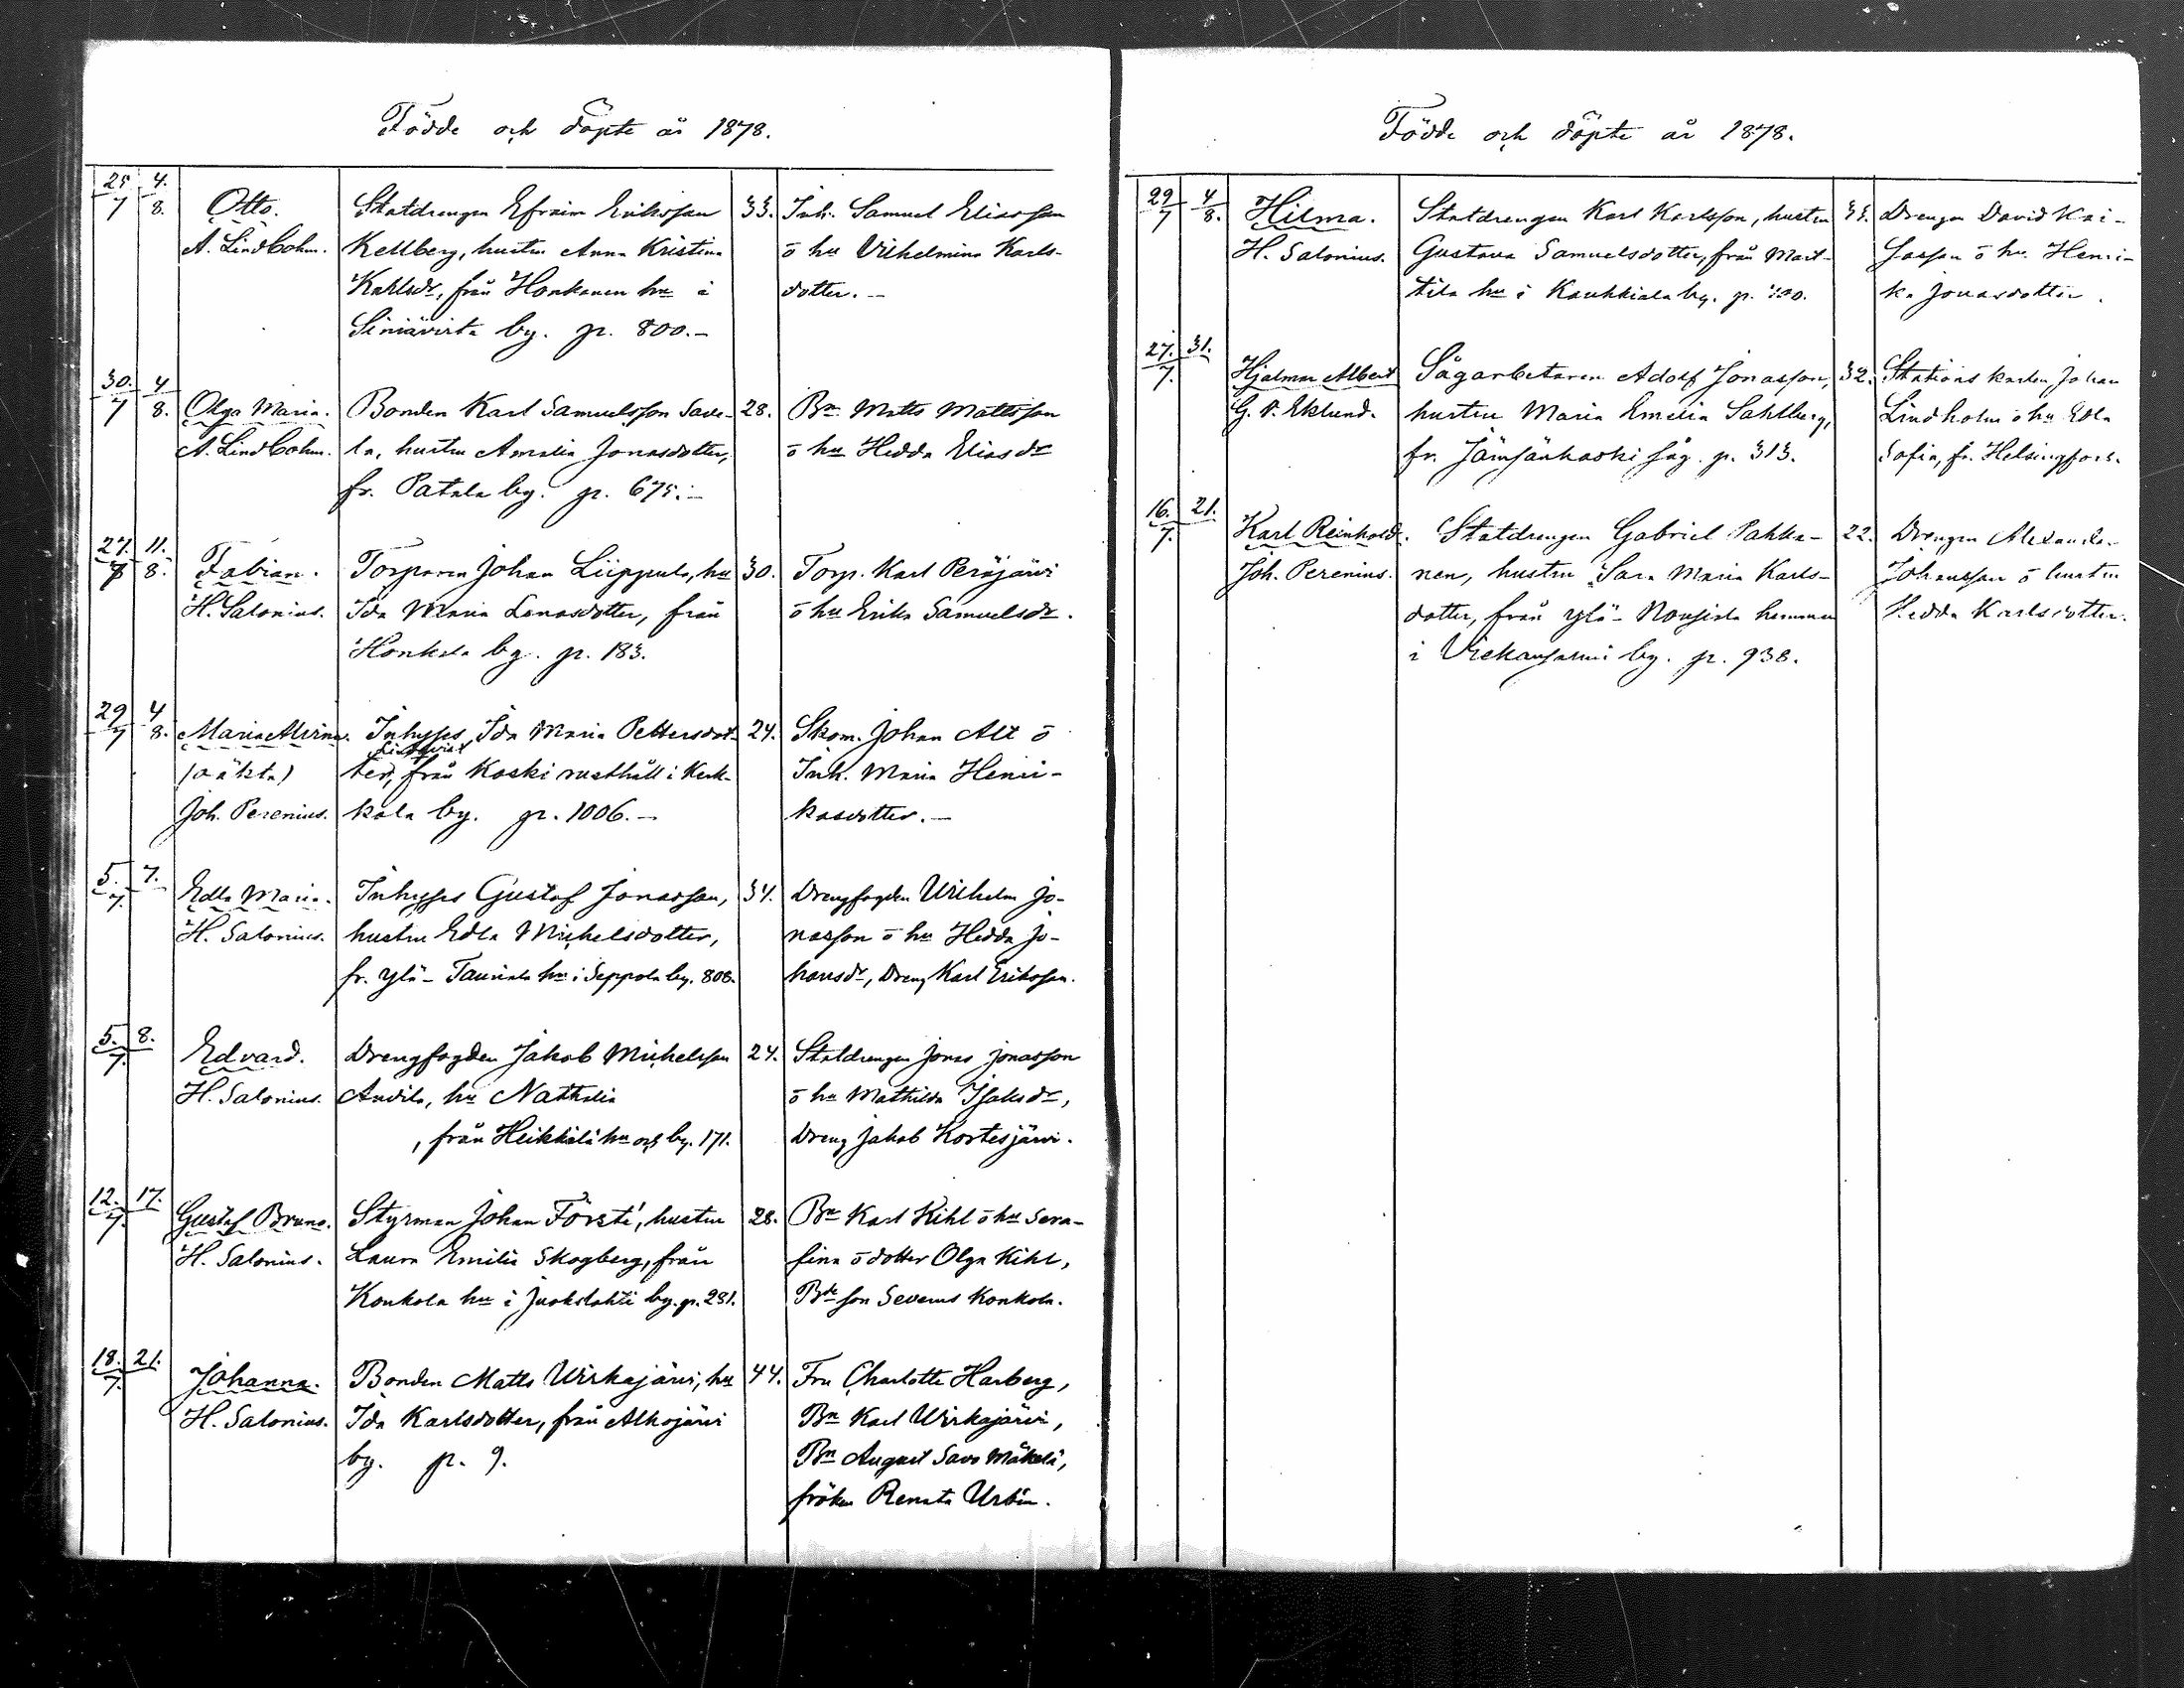 Födde och döpte år 1878.
25/7 4/8. Otto. Statdrengen Efraim Eriksson 33. Inh. Samuel Eliasson
A. Lindbohm. Kellberg, hustru Anna Kristina ō hu Vilhelmina Karls-
Karlsdr, från Honkanen hn i dotter. –
Siniävirta by. p. 800. –
30./7 4/8. Olga Maria. Bonden Karl Samuelsson Save- 28. Bn Matts Mattsson
A. Lindbohm. la, hustru Amalia Jonasdotter, ō hu Hedda Eliasdr
fr. Patala by. p. 675. –
27./7 11./8. Fabian. Torparen Johan Liippula, hu 30. Torp. Karl Peräjärvi
H. Salonius. Ida Maria Lenasdotter, från ō hu Erika Samuelsdr.
Honkola by. p. 183.
29/7 4/8. Maria Alvina. Inhyses Ida Maria Pettersdot- 24. Skom. Johan Alt ō
Lindqvist
(oäkta) ter, från Koski rusthåll i Kerk- Inh. Maria Henri-
Joh. Perenius. kola by. p. 1006. – kasdotter. –
5./7. 7. Edla Maria. Inhyses Gustaf Jonasson, 34. Drengfogden Wilhelm Jo-
H. Salonius. hustru Edla Michelsdotter, nasson ō hu Hedda Jo-
fr. Ylä-Tauriala hn i Seppola by. 808. hansdr, Dreng Karl Eriksson.
5./7. 8. Edvard. Drengfogden Jakob Michelsson 24. Statdrengen Jonas Jonasson
H. Salonius. Andila, hu Nathalia ō hu Mathilda Isaksdr,
, från Heikkilä hn och by. 171. Dreng Jakob Kortesjärvi.
12./7. 17. Gustaf Bruno. Styrman Johan Försti, hustru 28. Bn Karl Kihl ō hu Sera-
H. Salonius. Laura Emilia Skogberg, från fina ō dotter Olga Kihl,
Konkola hn i Juokslahti by. p. 281. Bde son Severus Konkola.
18./7. 21. Johanna. Bonden Matts Wirkajärvi, hu 44. Fru Charlotte Harberg,
H. Salonius. Ida Karlsdotter, från Alhojärvi Bn Karl Wirkajärvi,
by. p. 9. Bn August Savo Mäkelä,
fröken Renata Urbin.
Födde och döpte år 1878.
29/7 4/8. Hilma. Statdrengen Karl Karlsson, hustru 33. Drengen David Kai-
H. Salonius. Gustava Samuelsdotter, från Mart- sasson ō hu. Henri-
tila hn i Kaukkiala by. p. ka Jonasdotter.
27./7. 31. Hjalmar Albert Sågarbetaren Adolf Jonasson, 32. Stations karlen Johan
G. V. Eklund. hustru Maria Emelia Sahlberg, Lindholm ō hu Edla
fr. Jämsänkoski såg. p. 313. Sofia, fr. Helsingfors.
16./7. 21. Karl Reinhold. Statdrengen Gabriel Pakka- 22. Drengen Alexander
Joh. Perenius. nen, hustru Sara Maria Karls- Johansson ō hustru
dotter, från Ylä-Nousiala hemman Hedda Karlsdotter.
i by. p. 938.